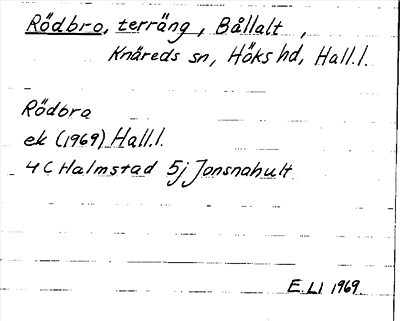 Rödbro, terräng, Bållalt,
Knäreds sn, Höks hd, Hall.l.
Rödbro
ek (1969) Hall.l.
4C Halmstad 5j Jonsnahult
E.Ll 1969